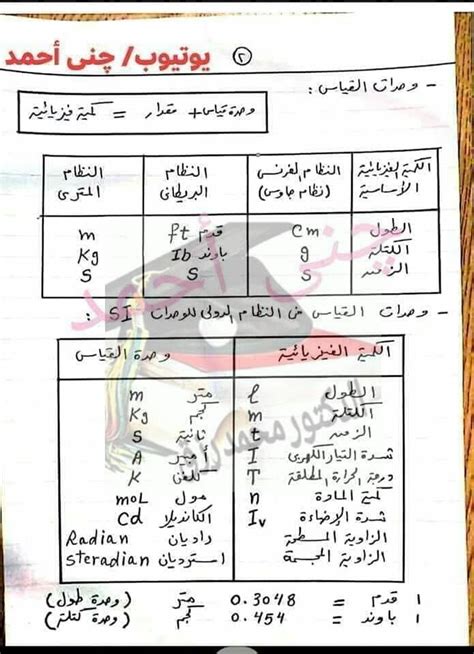 يوتيوب/ چنى أحمد ٢
- وحدات القياس :
كمية فيزيائية = مقدار + وحدة قياس
الكمية الفيزيائية الأساسية | النظام الفرنسي (نظام جاوس) | النظام البريطاني | النظام المتري
الطول | cm | قدم ft | m
الكتلة | g | باوند Ib | Kg
الزمن | S | S | S
- وحدات القياس من النظام الدولي للوحدات SI :
الكمية الفيزيائية | وحدة القياس
الطول l | متر m
الكتلة m | كجم Kg
الزمن t | ثانية s
شدة التيار الكهربى I | أمبير A
درجة الحرارة المطلقة T | كلفن K
كمية المادة n | مول moL
شدة الإضاءة Iv | الكانديلا Cd
الزاوية المسطحة | راديان Radian
الزاوية المجسمة | استرديان steradian
١ قدم = 0.3048 متر (وحدة طول)
١ باوند = 0.454 كجم (وحدة كتلة)
چنى أحمد
الدكتور محمد رزق